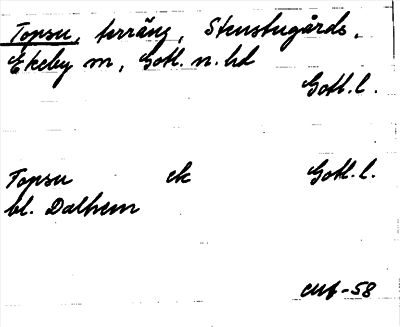 Topsu, terräng, Stenstugårds,
Ekeby sn, Gotl. n. hd
Gotl. l.
Topsu ek Gotl. l.
bl. Dalhem
-58